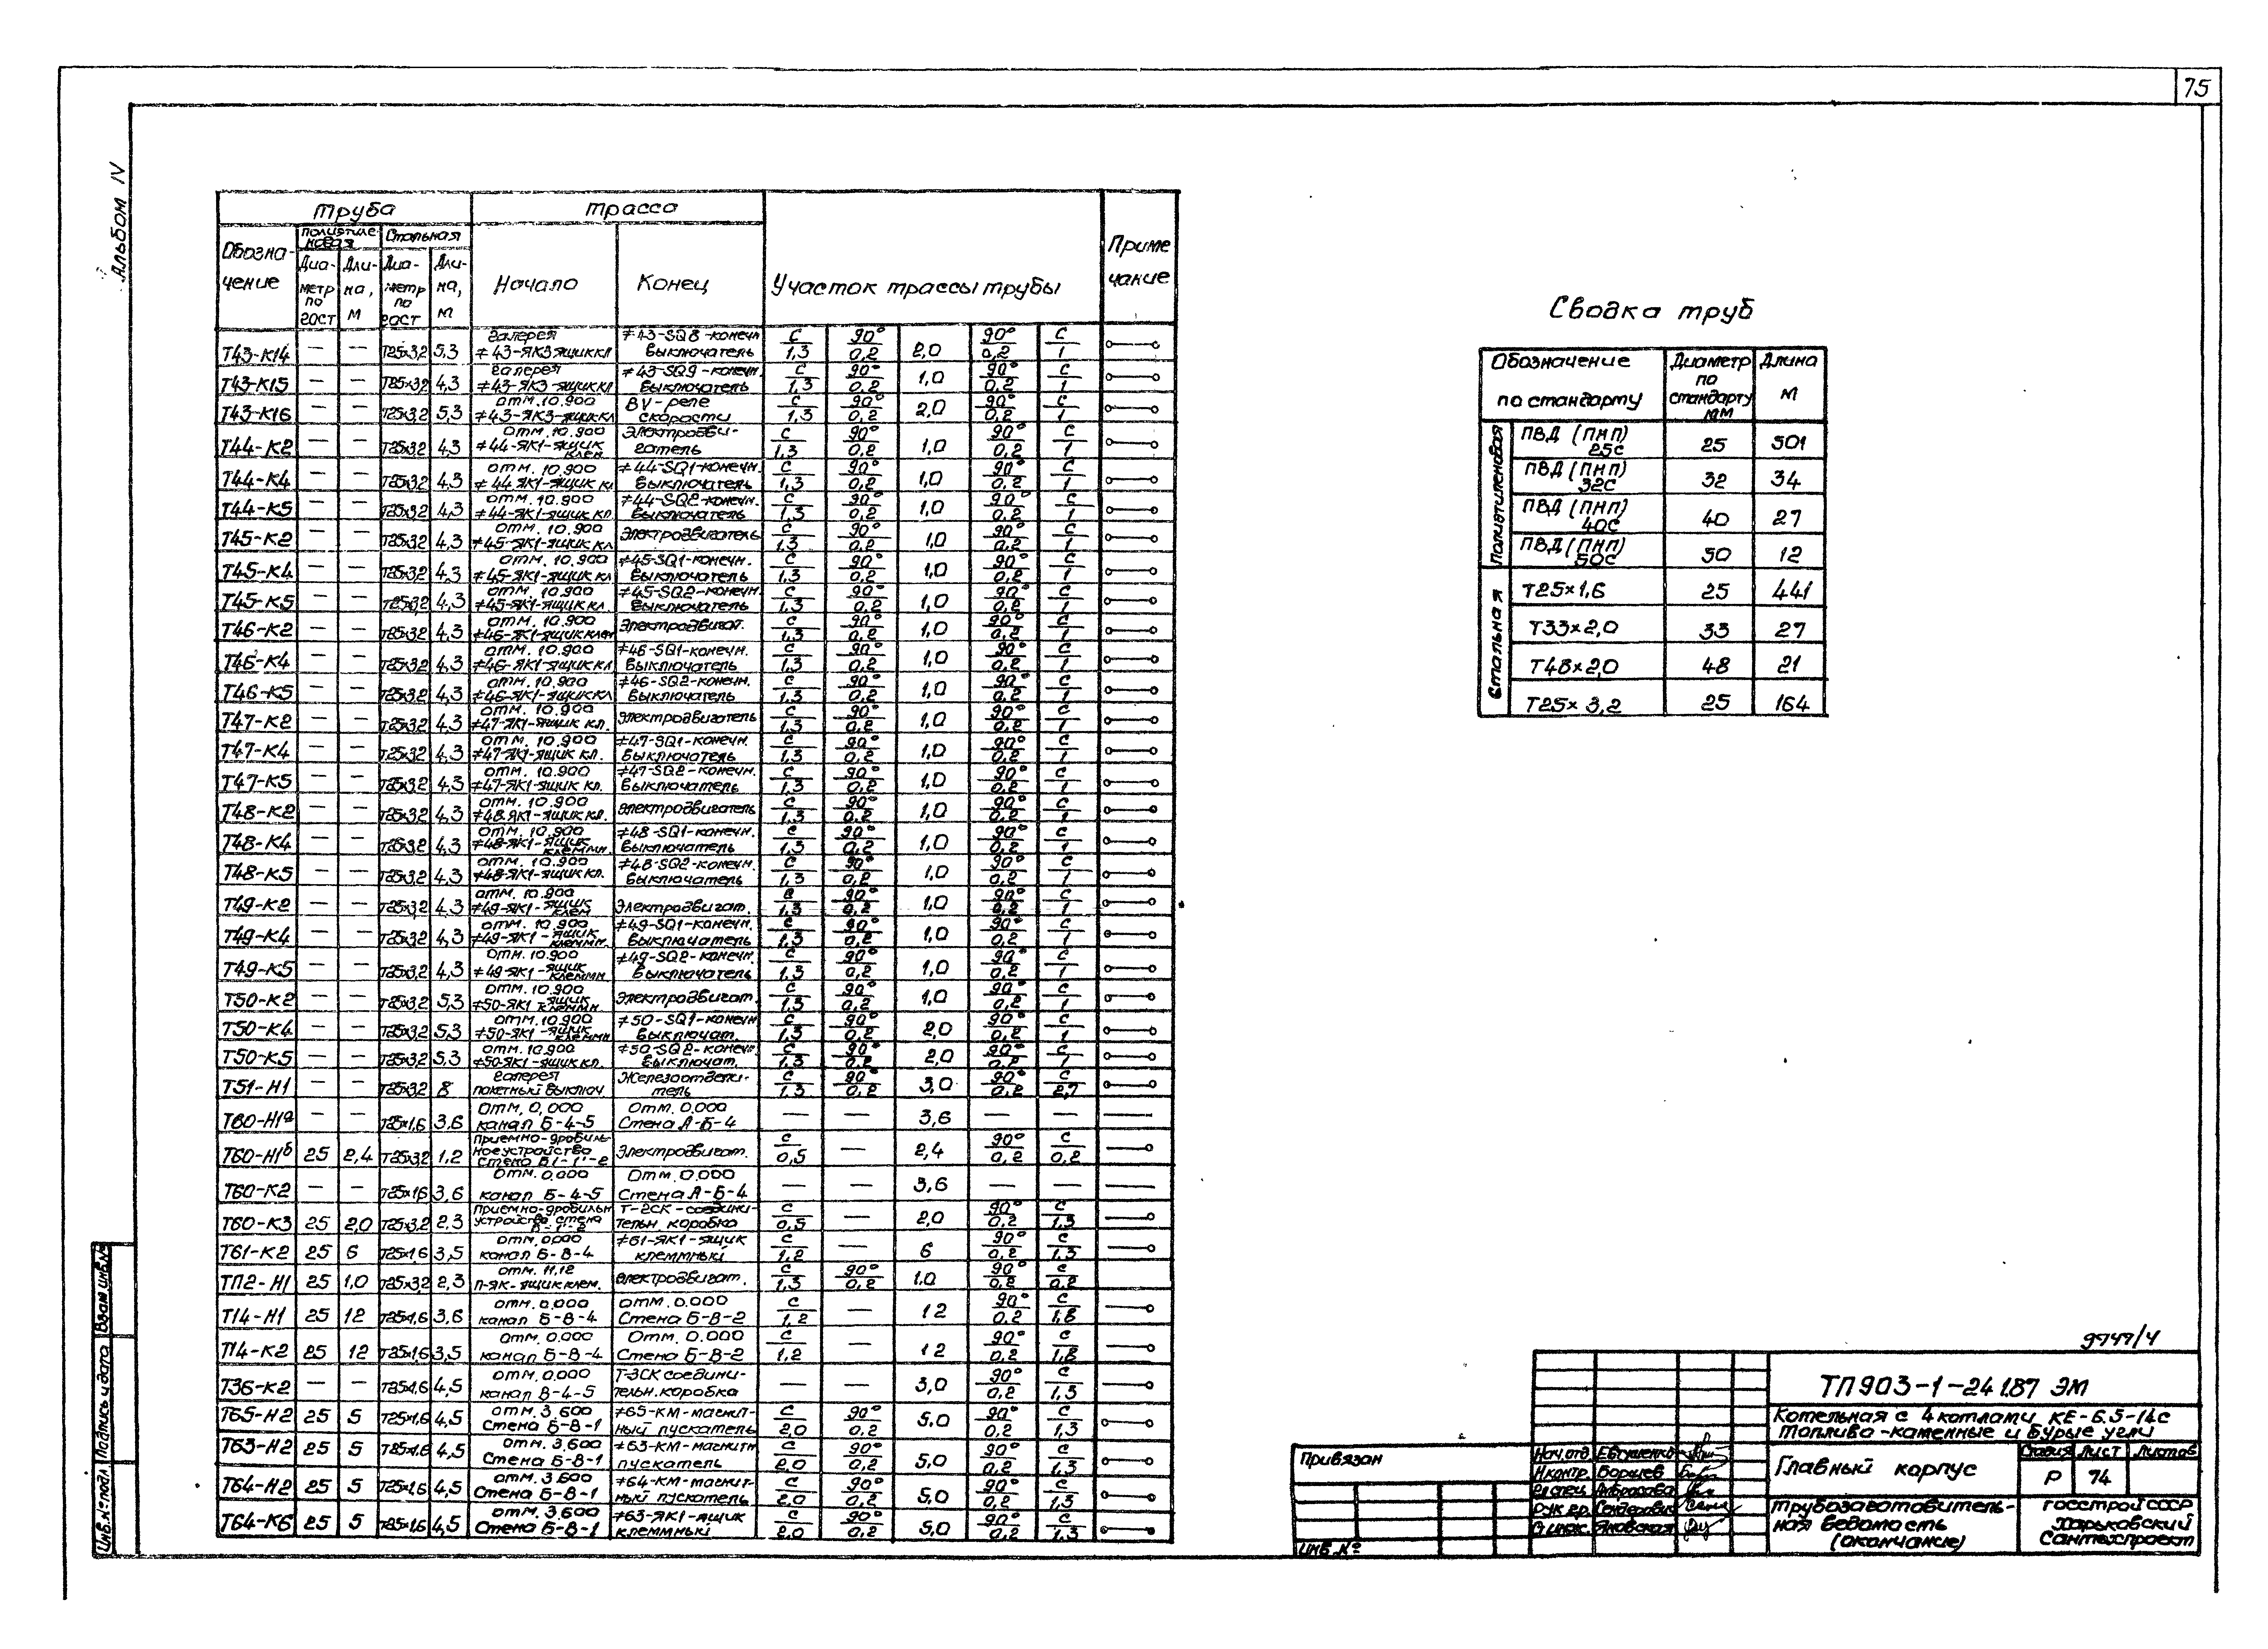 75
Альбом IV
Труба
Трасса
Участок трассы трубы
Приме
чание
Обозна-
чение
Полиэтиле
новая
Стальная
Диа-
метр
по
гост
Дли-
на,
м
Диа-
метр
по
гост
Дли-
на,
м
Начало
Конец
Т43-К14 — — Т25х3,2 5,3 галерея ≠43-ЯК3 ящик кл ≠43-SQ8-конечн выключатель С/1,3 90°/0,2 2,0 90°/0,2 С/1
Т43-К15 — — Т25х3,2 4,3 галерея ≠43-ЯК3-ящик кл ≠43-SQ9-конечн. выключатель С/1,3 90°/0,2 1,0 90°/0,2 С/1
Т43-К16 — — Т25х3,2 5,3 отм.10.900 ≠43-ЯК3-ящик кл BV-реле скорости С/1,3 90°/0,2 2,0 90°/0,2 С/1
Т44-К2 — — Т25х3,2 4,3 отм.10.900 ≠44-ЯК1-ящик клем Электродви-гатель С/1,3 90°/0,2 1,0 90°/0,2 С/1
Т44-К4 — — Т25х3,2 4,3 отм.10.900 ≠44 ЯК1-ящик кл ≠44-SQ1-конечн. выключатель С/1,3 90°/0,2 1,0 90°/0,2 С/1
Т44-К5 — — Т25х3,2 4,3 отм.10.900 ≠44-ЯК1-ящик кл ≠44-SQ2-конечн. выключатель С/1,3 90°/0,2 1,0 90°/0,2 С/1
Т45-К2 — — Т25х3,2 4,3 отм.10.900 ≠45-ЯК1-ящик кл электродвигатель С/1,3 90°/0,2 1,0 90°/0,2 С/1
Т45-К4 — — Т25х3,2 4,3 отм.10.900 ≠45-ЯК1-ящик кл ≠45-SQ1-конечн. выключатель С/1,3 90°/0,2 1,0 90°/0,2 С/1
Т45-К5 — — Т25х3,2 4,3 отм.10.900 ≠45-ЯК1-ящик кл. ≠45-SQ2-конечн. выключатель С/1,3 90°/0,2 1,0 90°/0,2 С/1
Т46-К2 — — Т25х3,2 4,3 отм.10.900 ≠46-ЯК1-ящик клем Электродвигат. С/1,3 90°/0,2 1,0 90°/0,2 С/1
Т46-К4 — — Т25х3,2 4,3 отм.10.900 ≠46-ЯК1-ящик кл ≠46-SQ1-конечн. выключатель С/1,3 90°/0,2 1,0 90°/0,2 С/1
Т46-К5 — — Т25х3,2 4,3 отм.10.900 ≠46-ЯК1-ящик кл ≠46-SQ2-конечн. выключатель С/1,3 90°/0,2 1,0 90°/0,2 С/1
Т47-К2 — — Т25х3,2 4,3 отм.10.900 ≠47-ЯК1-ящик кл. электродвигатель С/1,3 90°/0,2 1,0 90°/0,2 С/1
Т47-К4 — — Т25х3,2 4,3 отм.10.900 ≠47-ЯК1-ящик кл. ≠47-SQ1-конечн. выключатель С/1,3 90°/0,2 1,0 90°/0,2 С/1
Т47-К5 — — Т25х3,2 4,3 отм.10.900 ≠47-ЯК1-ящик кл. ≠47-SQ2-конечн. выключатель С/1,3 90°/0,2 1,0 90°/0,2 С/1
Т48-К2 — — Т25х3,2 4,3 отм.10.900 ≠48 ЯК1-ящик кл. электродвигатель С/1,3 90°/0,2 1,0 90°/0,2 С/1
Т48-К4 — — Т25х3,2 4,3 отм.10.900 ≠48-ЯК1-ящик клеммн. ≠48-SQ1-конечн. выключатель С/1,3 90°/0,2 1,0 90°/0,2 С/1
Т48-К5 — — Т25х3,2 4,3 отм.10.900 ≠48-ЯК1-ящик кл. ≠48-SQ2-конечн. выключатель С/1,3 90°/0,2 1,0 90°/0,2 С/1
Т49-К2 — — Т25х3,2 4,3 отм.10.900 ≠49-ЯК1-ящик клем Электродвигат. С/1,3 90°/0,2 1,0 90°/0,2 С/1
Т49-К4 — — Т25х3,2 4,3 отм.10.900 ≠49-ЯК1-ящик клеммн. ≠49-SQ1-конечн. выключатель С/1,3 90°/0,2 1,0 90°/0,2 С/1
Т49-К5 — — Т25х3,2 4,3 отм.10.900 ≠49-ЯК1-ящик клеммн ≠49-SQ2-конечн. выключатель С/1,3 90°/0,2 1,0 90°/0,2 С/1
Т50-К2 — — Т25х3,2 5,3 отм.10.900 ≠50-ЯК1 ящик клеммн. Электродвигат. С/1,3 90°/0,2 1,0 90°/0,2 С/1
Т50-К4 — — Т25х3,2 5,3 отм.10.900 ≠50-ЯК1-ящик клеммн ≠50-SQ1-конечн выключат. С/1,3 90°/0,2 2,0 90°/0,2 С/1
Т50-К5 — — Т25х3,2 5,3 отм.10.900 ≠50-ЯК1-ящик кл. ≠50-SQ2-конечн. выключат. С/1,3 90°/0,2 2,0 90°/0,2 С/1
Т51-Н1 — — Т25х3,2 8 галерея пакетный выключ. Железоотдели-тель С/1,3 90°/0,2 3,0 90°/0,2 С/2,7
Т60-Н1а — — Т25х1,6 3,6 Отм. 0,000 канал Б-4-5 Отм. 0.000 Стена А-Б-4 — — 3,6 — —
Т60-Н1б 25 2,4 Т25х3,2 1,2 приемно-дробиль-ное устройство стена Б1-1'-2 Электродвигат. С/0,5 — 2,4 90°/0,2 С/0,2
Т60-К2 — — Т25х1,6 3,6 Отм. 0.000 канал Б-4-5 Отм. 0.000 Стена А-Б-4 — — 3,6 — —
Т60-К3 25 2,0 Т25х3,2 2,3 приемно-дробильн устройство стена Т-2СК-соедини-тельн. коробка С/0,5 — 2,0 90°/0,2 С/1,3
Т61-К2 25 6 Т25х1,6 3,5 отм. 0,000 канал Б-В-4 ≠61-ЯК1-ящик клеммный С/1,2 — 6 90°/0,2 С/1,3
ТП2-Н1 25 1,0 Т25х3,2 2,3 отм. 11.12 П-ЯК-ящик клем. электродвигат. С/1,3 90°/0,2 1,0 90°/0,2 С/0,2
Т14-Н1 25 12 Т25х1,6 3,6 отм. 0.000 канал Б-В-4 отм. 0.000 Стена Б-В-2 С/1,2 — 12 90°/0,2 С/1,8
Т14-К2 25 12 Т25х1,6 3,5 отм. 0.000 канал Б-В-4 Отм. 0.000 Стена Б-В-2 С/1,2 — 12 90°/0,2 С/1,8
Т36-К2 — — Т25х1,6 4,5 отм. 0,000 канал В-4-5 Т-3СК соедини-тельн. коробка — — 3,0 90°/0,2 С/1,3
Т65-Н2 25 5 Т25х1,6 4,5 отм. 3.600 Стена Б-В-1 ≠65-КМ-магнит-ный пускатель С/2,0 90°/0,2 5,0 90°/0,2 С/1,3
Т63-Н2 25 5 Т25х1,6 4,5 отм. 3.600 Стена Б-В-1 ≠63-КМ-магнитн пускатель С/2,0 90°/0,2 5,0 90°/0,2 С/1,3
Т64-Н2 25 5 Т25х1,6 4,5 отм. 3.600 Стена Б-В-1 ≠64-КМ-магнит-ный пускатель С/2,0 90°/0,2 5,0 90°/0,2 С/1,3
Т64-К6 25 5 Т25х1,6 4,5 отм. 3.600 Стена Б-В-1 ≠63-ЯК1-ящик клеммный С/2,0 90°/0,2 5,0 90°/0,2 С/1,3
Сводка труб
Обозначение
по стандарту
Диаметр
по
стандарту
мм
Длина
м
Полиэтиленовая
ПВД (ПНП) 25С 25 501
ПВД (ПНП) 32С 32 34
ПВД (ПНП) 40С 40 27
ПВД (ПНП) 50С 50 12
Стальная
Т25х1,6 25 441
Т33х2,0 33 27
Т48х2,0 48 21
Т25х3,2 25 164
9747/4
ТП903-1-241.87 ЭМ
Котельная с 4 котлами КЕ-6.5-14с
Топливо-каменные и бурые угли
Главный корпус
Стадия Лист Листов
Р 74
Трубозаготовитель-
ная ведомость
(окончание)
Госстрой СССР
Харьковский
Сантехпроект
Привязан
Инв. №
Нач.отд. Евтушенко
Н.контр.
Гл.спец.
Рук.гр.
Яновская
Инв.№ подл. Подпись и дата Взам.инв.№